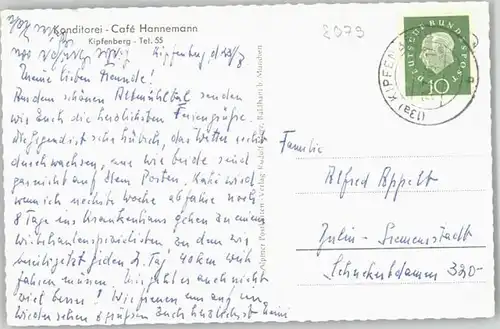 Konditorei - Café Hannemann
Kipfenberg - Tel. 55
Kipfenberg, d. 23/8
2979
Meine lieben Freunde!
Aus dem schönen Altmühltal senden
wir Euch die herzlichsten Feriengrüße.
Die Gegend ist sehr hübsch, das Wetter recht
durchwachsen, nur wir beide sind
garnicht auf dem Posten. Käthi wird
wenn ich nächste Woche abfahre noch
8 Tage ins Krankenhaus gehen zu einem
zu dem wir
jeden 2. Tag 40 km weit
fahren müssen. Mir geht es auch nicht
viel besser! Wir freuen uns auf ein
Wiedersehen & grüßen Euch herzlichst
Alpiner Postkarten-Verlag Rudolf
b. München
DEUTSCHE BUNDESPOST
10
(13a) KIPFENB
Familie
Alfred Appelt
Berlin - Siemensstadt
Schuckertdamm 320